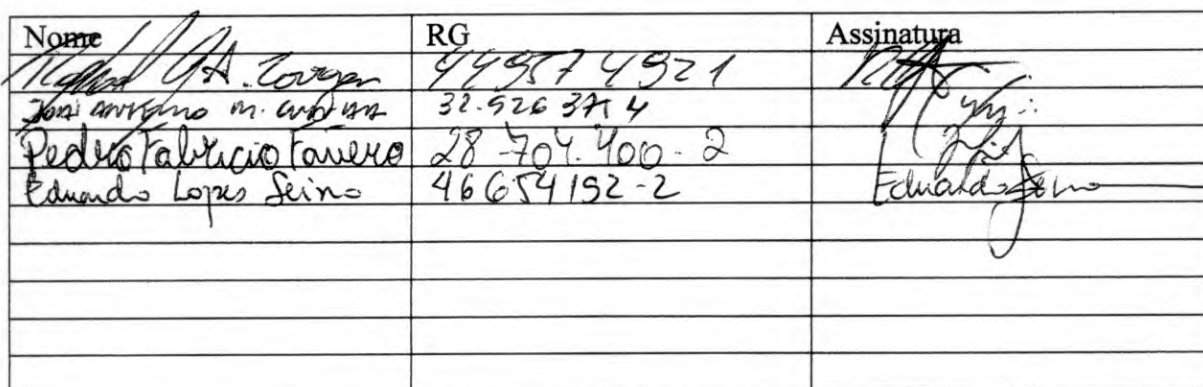 Nome RG Assinatura
A. 449574921
M. 32.926 371 4
Pedro Fabricio Favero 28-704.400-2
Eduardo Lopes Seino 46654192-2 Eduardo Seino